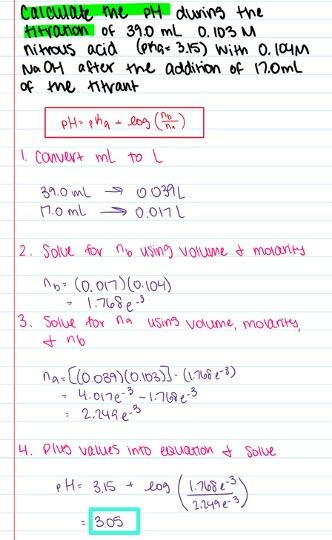 Calculate the pH during the
titration of 39.0 mL 0.103 M
nitrous acid (pka = 3.15) with 0.104M
NaOH after the addition of 17.0mL
of the titrant
pH = pka + log (nb/na)
1. Convert mL to L
39.0 mL → 0.039L
17.0 mL → 0.017L
2. Solve for nb using volume & molarity
nb = (0.017)(0.104)
= 1.768e⁻³
3. Solve for na using volume, molarity,
& nb
na = [(0.039)(0.103)] - (1.768e⁻³)
= 4.017e⁻³ - 1.768e⁻³
= 2.249e⁻³
4. Plug values into equation & solve
pH = 3.15 + log (1.768e⁻³/2.249e⁻³)
= 3.05